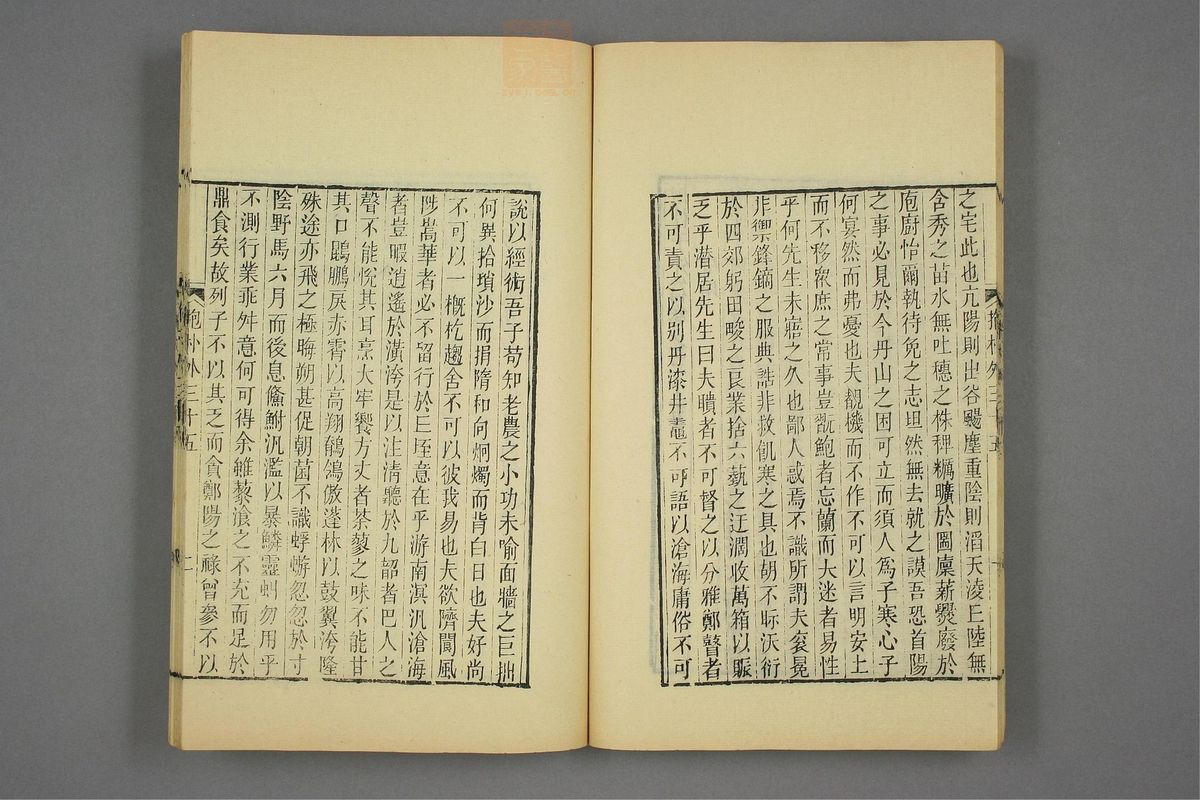 之宅此也亢陽則出谷颺塵重陰則滔天淩丘陸無
含秀之苗水無吐穗之株稗糲曠於圌廩薪爨廢於
庖廚怡爾執待免之志坦然無去就之謨吾恐首陽
之事必見於今丹山之困可立而須人爲子寒心子
何宴然而弗憂也夫覩機而不作不可以言明安土
而不移衆庶之常事豈翫鮑者忘蘭而大迷者易性
乎何先生未寤之久也鄙人惑焉不識所謂夫袞冕
非禦鋒鏑之服典誥非救飢寒之具也胡不眎沃衍
於四郊躬田畯之良業捨六藝之迂濶收萬箱以賑
乏乎潛居先生曰夫聵者不可督之以分雅鄭瞽者
不可責之以別丹漆井鼃不可語以滄海庸俗不可
抱朴外三十五
說以經術吾子苟知老農之小功未喻面牆之巨拙
何異拾瑣沙而捐隋和向炯燭而背白日也夫好尚
不可以一概杚趨舍不可以彼我易也夫欲隮閬風
陟嵩華者必不留行於丘垤意在乎游南溟汎滄海
者豈暇逍遙於潢洿是以注清聽於九韶者巴人之
聲不能悅其耳烹大牢饗方丈者荼蓼之味不能甘
其口鵾鵬戾赤霄以高翔鶺鴒傲蓬林以鼓翼洿隆
殊途亦飛之極晦朔甚促朝菌不識蜉蝣忽忽於寸
陰野馬六月而後息鯈鮒汎濫以暴鱗靈虯勿用乎
不測行業乖舛意何可得余雖藜湌之不充而足於
鼎食矣故列子不以其乏而貪鄭陽之祿曾參不以
抱朴外三十五
二